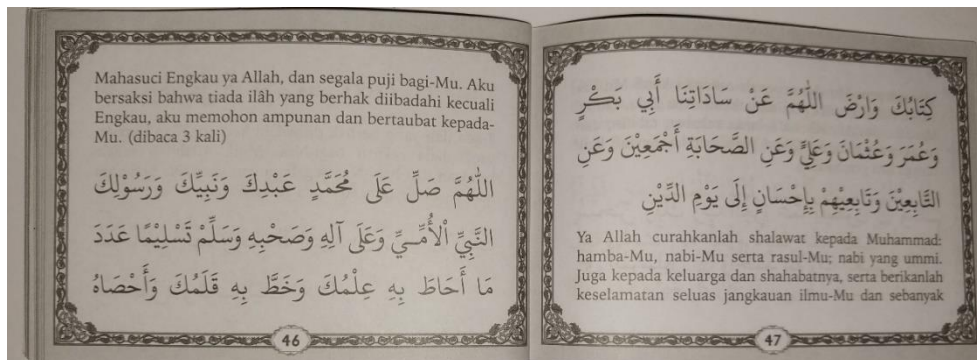 Mahasuci Engkau ya Allah, dan segala puji bagi-Mu. Aku
bersaksi bahwa tiada ilâh yang berhak diibadahi kecuali
Engkau, aku memohon ampunan dan bertaubat kepada-
Mu. (dibaca 3 kali)
اللّٰهُمَّ صَلِّ عَلَى مُحَمَّدٍ عَبْدِكَ وَنَبِيِّكَ وَرَسُوْلِكَ
النَّبِيِّ الْأُمِّـيِّ وَعَلَى آلِهِ وَصَحْبِهِ وَسَلِّمْ تَسْلِيْمًا عَدَدَ
مَا أَحَاطَ بِهِ عِلْمُكَ وَخَطَّ بِهِ قَلَمُكَ وَأَحْصَاهُ
46
كِتَابُكَ وَارْضَ اللّٰهُمَّ عَنْ سَادَاتِنَا أَبِي بَكْرٍ
وَعُمَرَ وَعُثْمَانَ وَعَلِيٍّ وَعَنِ الصَّحَابَةِ أَجْمَعِيْنَ وَعَنِ
التَّابِعِيْنَ وَتَابِعِيْهِمْ بِإِحْسَانٍ إِلَى يَوْمِ الدِّيْنِ
Ya Allah curahkanlah shalawat kepada Muhammad:
hamba-Mu, nabi-Mu serta rasul-Mu; nabi yang ummi.
Juga kepada keluarga dan shahabatnya, serta berikanlah
keselamatan seluas jangkauan ilmu-Mu dan sebanyak
47